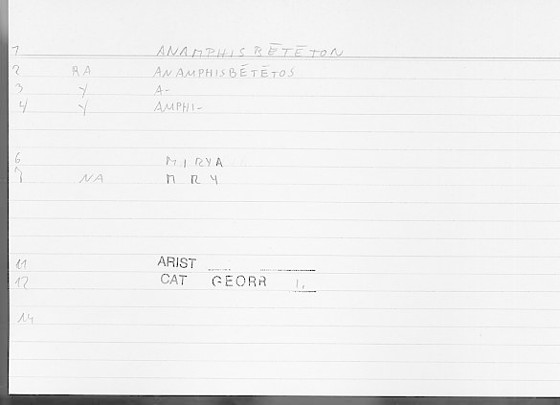 1 ANAMPHISBĒTĒTON
2 RA ANAMPHISBĒTĒTOS
3 Y A-
4 Y AMPHI-
6 MIRYA
7 NA MRY
11 ARIST
12 CAT GEORR 1.
14